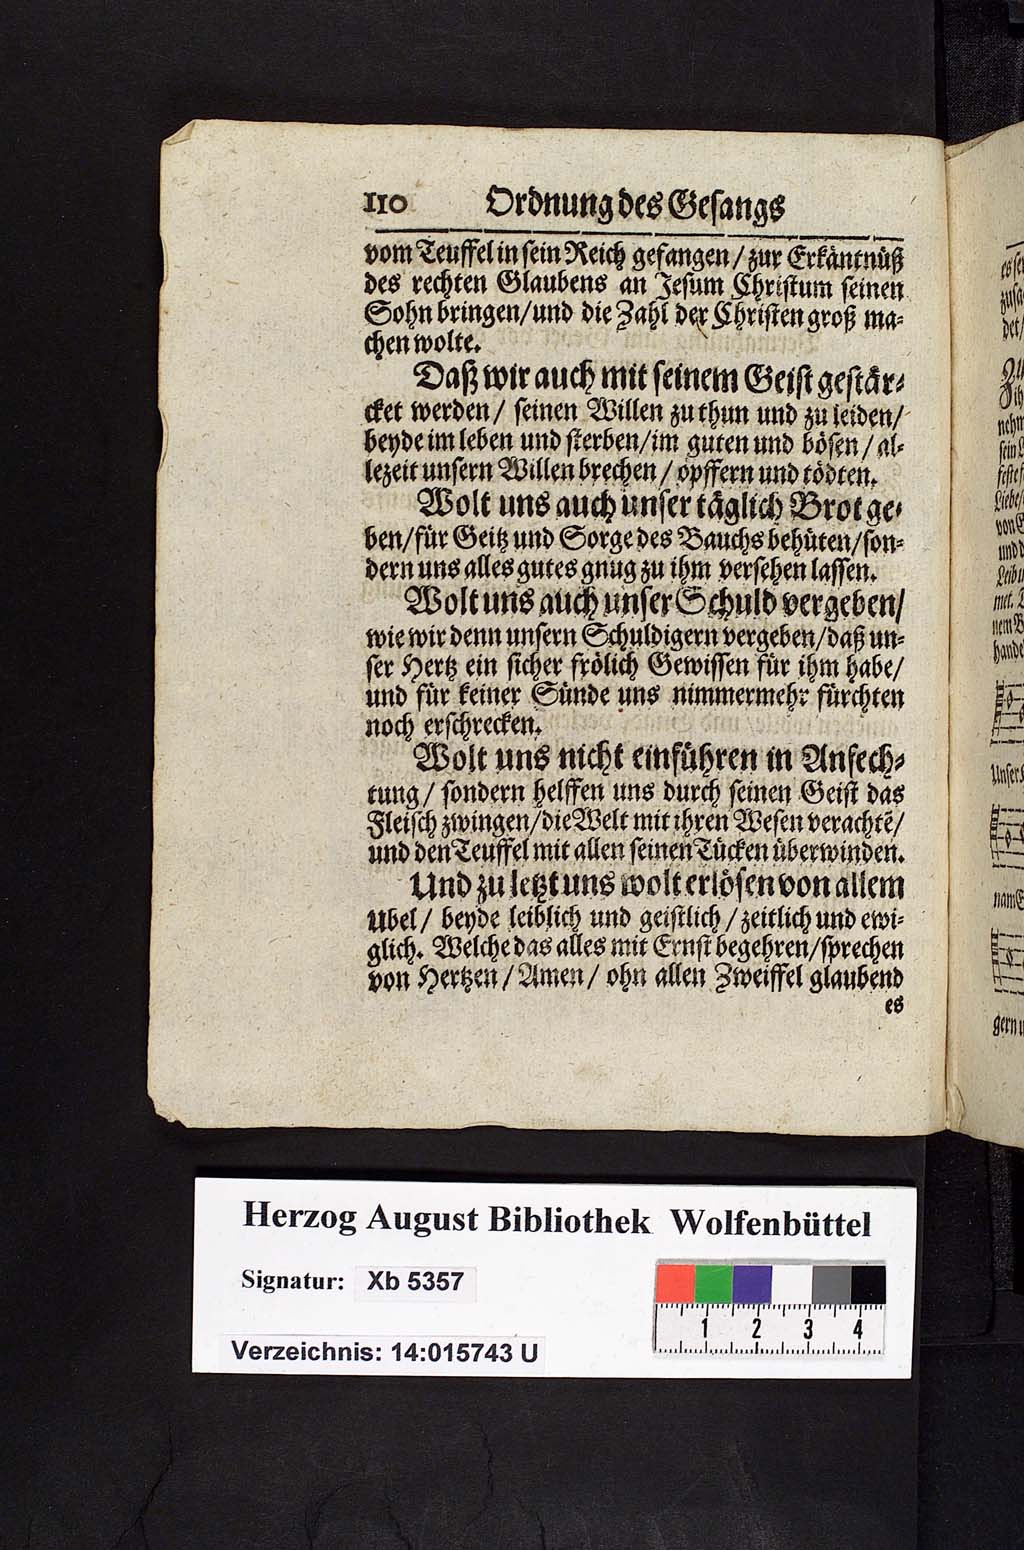 110 Ordnung des Gesangs
vom Teuffel in sein Reich gefangen / zur Erkäntnüß
des rechten Glaubens an Jesum Christum seinen
Sohn bringen / und die Zahl der Christen groß ma-
chen wolte.
Daß wir auch mit seinem Geist gestär-
cket werden / seinen Willen zu thun und zu leiden /
beyde im leben und sterben / im guten und bösen / al-
lezeit unsern Willen brechen / opffern und tödten.
Wolt uns auch unser täglich Brot ge-
ben / für Geitz und Sorge des Bauchs behüten / son-
dern uns alles gutes gnug zu ihm versehen lassen.
Wolt uns auch unser Schuld vergeben /
wie wir denn unsern Schuldigern vergeben / daß un-
ser Hertz ein sicher frölich Gewissen für ihm habe /
und für keiner Sünde uns nimmermehr fürchten
noch erschrecken.
Wolt uns nicht einführen in Anfech-
tung / sondern helffen uns durch seinen Geist das
Fleisch zwingen / die Welt mit ihren Wesen verachtẽ /
und den Teuffel mit allen seinen Tücken überwinden.
Und zu letzt uns wolt erlösen von allem
Ubel / beyde leiblich und geistlich / zeitlich und ewi-
glich. Welche das alles mit Ernst begehren / sprechen
von Hertzen / Amen / ohn allen Zweiffel glaubend
es
Herzog August Bibliothek Wolfenbüttel
Signatur: Xb 5357
Verzeichnis: 14:015743 U
1 2 3 4